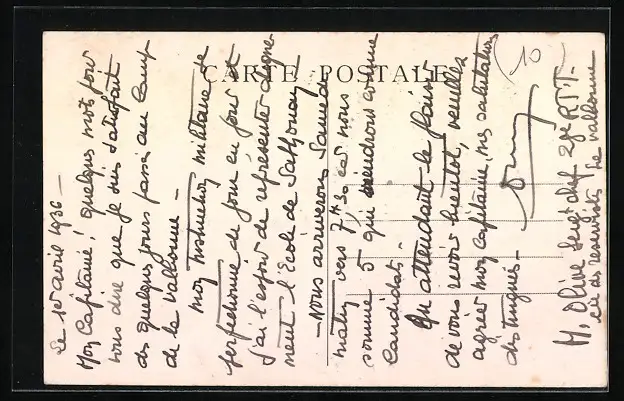 CARTE POSTALE
10
Le 1er avril 1936 —
Mon Capitaine! quelques mots pour
vous dire que je suis satisfait
des quelques jours passés au Camp
de la Valbonne —
mon instruction militaire se
perfectionne de jour en jour et
j'ai l'espoir de représenter digne
ment l'Ecole de Sathonay
— Nous arriverons Samedi
matin vers 7h30 car nous
somme 5 qui viendrons comme
Candidats —
En attendant le plaisir
de vous revoir bientôt, veuillez
agréer mon Capitaine, mes salutations
distingués —
M. Olive Sergt chef
Cie des réservistes La Valbonne